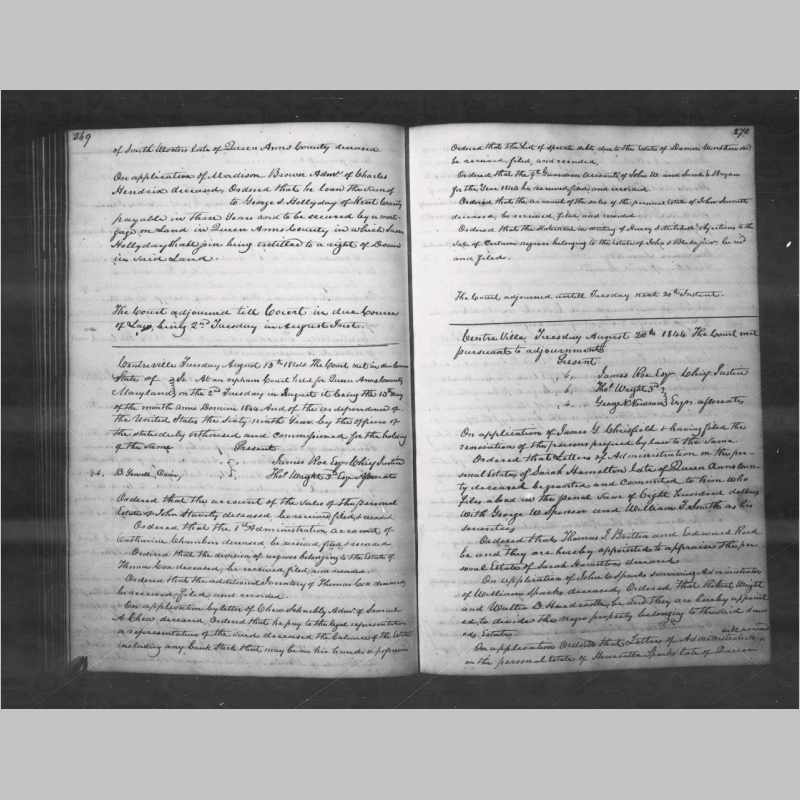 269
of Smith Wooters late of Queen Anns County deceased
On application of Madison Brown Admr. of Charles
Hendrix deceased, Ordered that he loan the sum of
to George S. Hollyday of Kent County
payable in Three Years and to be secured by a mort-
gage on Land in Queen Anns County in which
Hollyday shall join being entitled to a right of Dower
in said Land.
The Court adjourned till Court in due Course
of Law, being 2nd Tuesday in August Inst.
Centreville Tuesday August 13th 1844 The Court met in due Course
State of Sc. At an orphans Court held for Queen Anns County
Maryland on the 2nd Tuesday in August it being the 13th day
of the month Anno Domini 1844 And of the independence of
the United States the sixty ninth Year by the officers of
the state duly Authorised and Commissioned for the holding
of the same Present
James Roe Esqr Chief Justice
Thos. Wright 3rd Esqr Associate
Ordered that the account of the Sales of the personal
Estate of John deceased be received filed, & record
Ordered that the 1st Administration account of
Catharine Chambers deceased be received filed & record
Ordered that the division of negroes belonging to the Estate of
Thomas Cox deceased, be received, filed, and record.
Ordered that the additional Inventory of Thomas Cox deceased,
be received, filed, and recorded.
On application by letter of Chew Admr. of Samuel
A Chew deceased Ordered that he pay to the legal representative
a representatives of the said deceased the balance of the Estate
including any Bank Stock that may be in his hands a proportion
270
Ordered that the List of sperate debts due to the Estate of
be received, filed, and recorded.
Ordered that the Guardian Account of John W. and Sarah E Bryan
for the Year 1842 be received filed and recorded.
Ordered that the account of the sales of the personal Estate of John
deceased, be received, filed, and recorded
Ordered that the in writing of Henry objections to the
Sale of Certain negroes belonging to the Estate of John S Blake be red
and filed.
The Court adjourned untill Tuesday next 20th Instant.
Centre Ville, Tuesday August 20th 1844 The Court met
pursuant to adjournment
Present
James Roe Esqr Chief Justice
Thos. Wright 3rd
George Newman Esqrs associates
On application of James G. & having filed the
renunciation of the persons prefered by law to the Same
Ordered that Letters of Administration on the per-
sonal Estate of Sarah Hamilton Late of Queen Anns Coun-
ty deceased be granted and Committed to him Who
files a bond in the penal Sum of Eight Hundred dollars
With George W. Spencer and William T. Smith as his
securities
Ordered that Thomas J. Britton and Edward Rock
be and they are hereby appointed to appraise the per-
sonal Estate of Sarah Hamilton deceased.
On application of John C Sparks surviving Administrator
of William Sparks deceased, Ordered that Robert Wright
and Walter D. be and they are hereby appoint-
ed to divide the negro property belonging to the said deceas-
eds Estate.
On application Ordered that Letters of Administration
with
on the personal Estate of Henrietta Sparks late of Queen